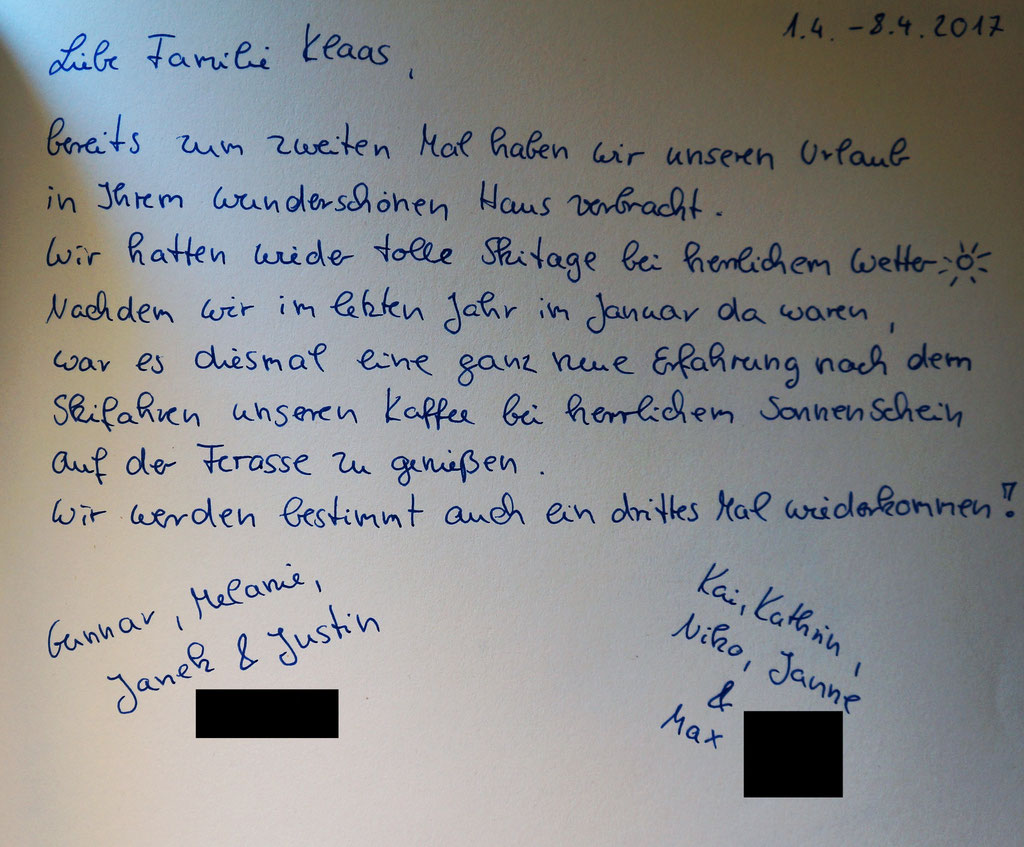 1.4. - 8.4.2017
Liebe Familie Klaas,
bereits zum zweiten Mal haben wir unseren Urlaub
in Ihrem wunderschönen Haus verbracht.
Wir hatten wieder tolle Skitage bei herrlichem Wetter
Nachdem wir im letzten Jahr im Januar da waren,
war es diesmal eine ganz neue Erfahrung nach dem
Skifahren unseren Kaffee bei herrlichem Sonnenschein
auf der Terasse zu genießen.
Wir werden bestimmt auch ein drittes Mal wiederkommen!
Gunnar, Melanie,
Janek & Justin
Kai, Kathrin,
Niko, Janne
&
Max